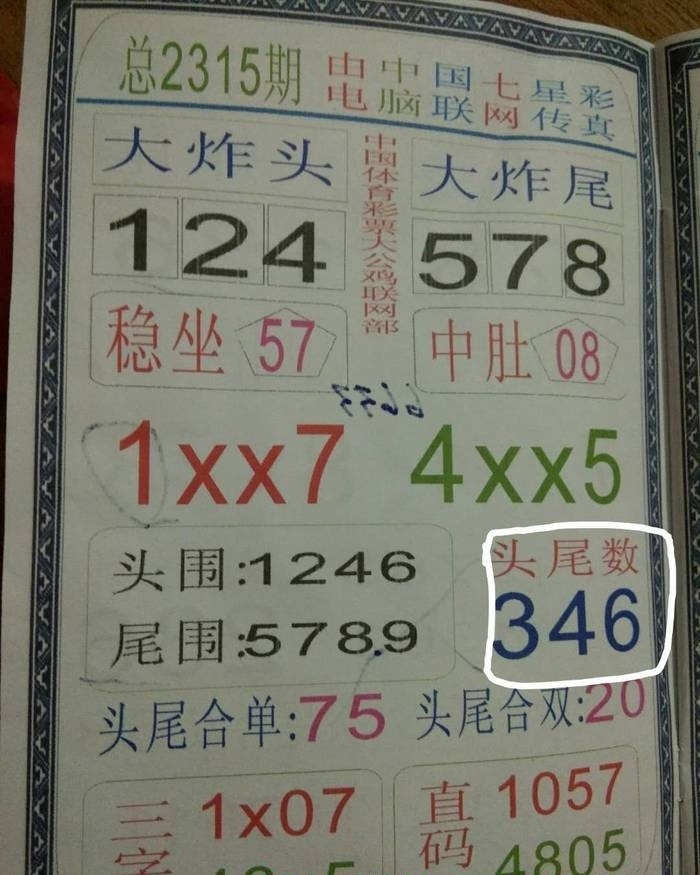 总2315期
由中国七星彩
电脑联网传真
大炸头
中国体育彩票大公鸡联网部
大炸尾
124
578
稳坐 57
中肚 08
1xx7
4xx5
头围:1246
尾围:578.9
头尾数
346
头尾合单:75
头尾合双:20
三字
1x07
直码
1057
4805